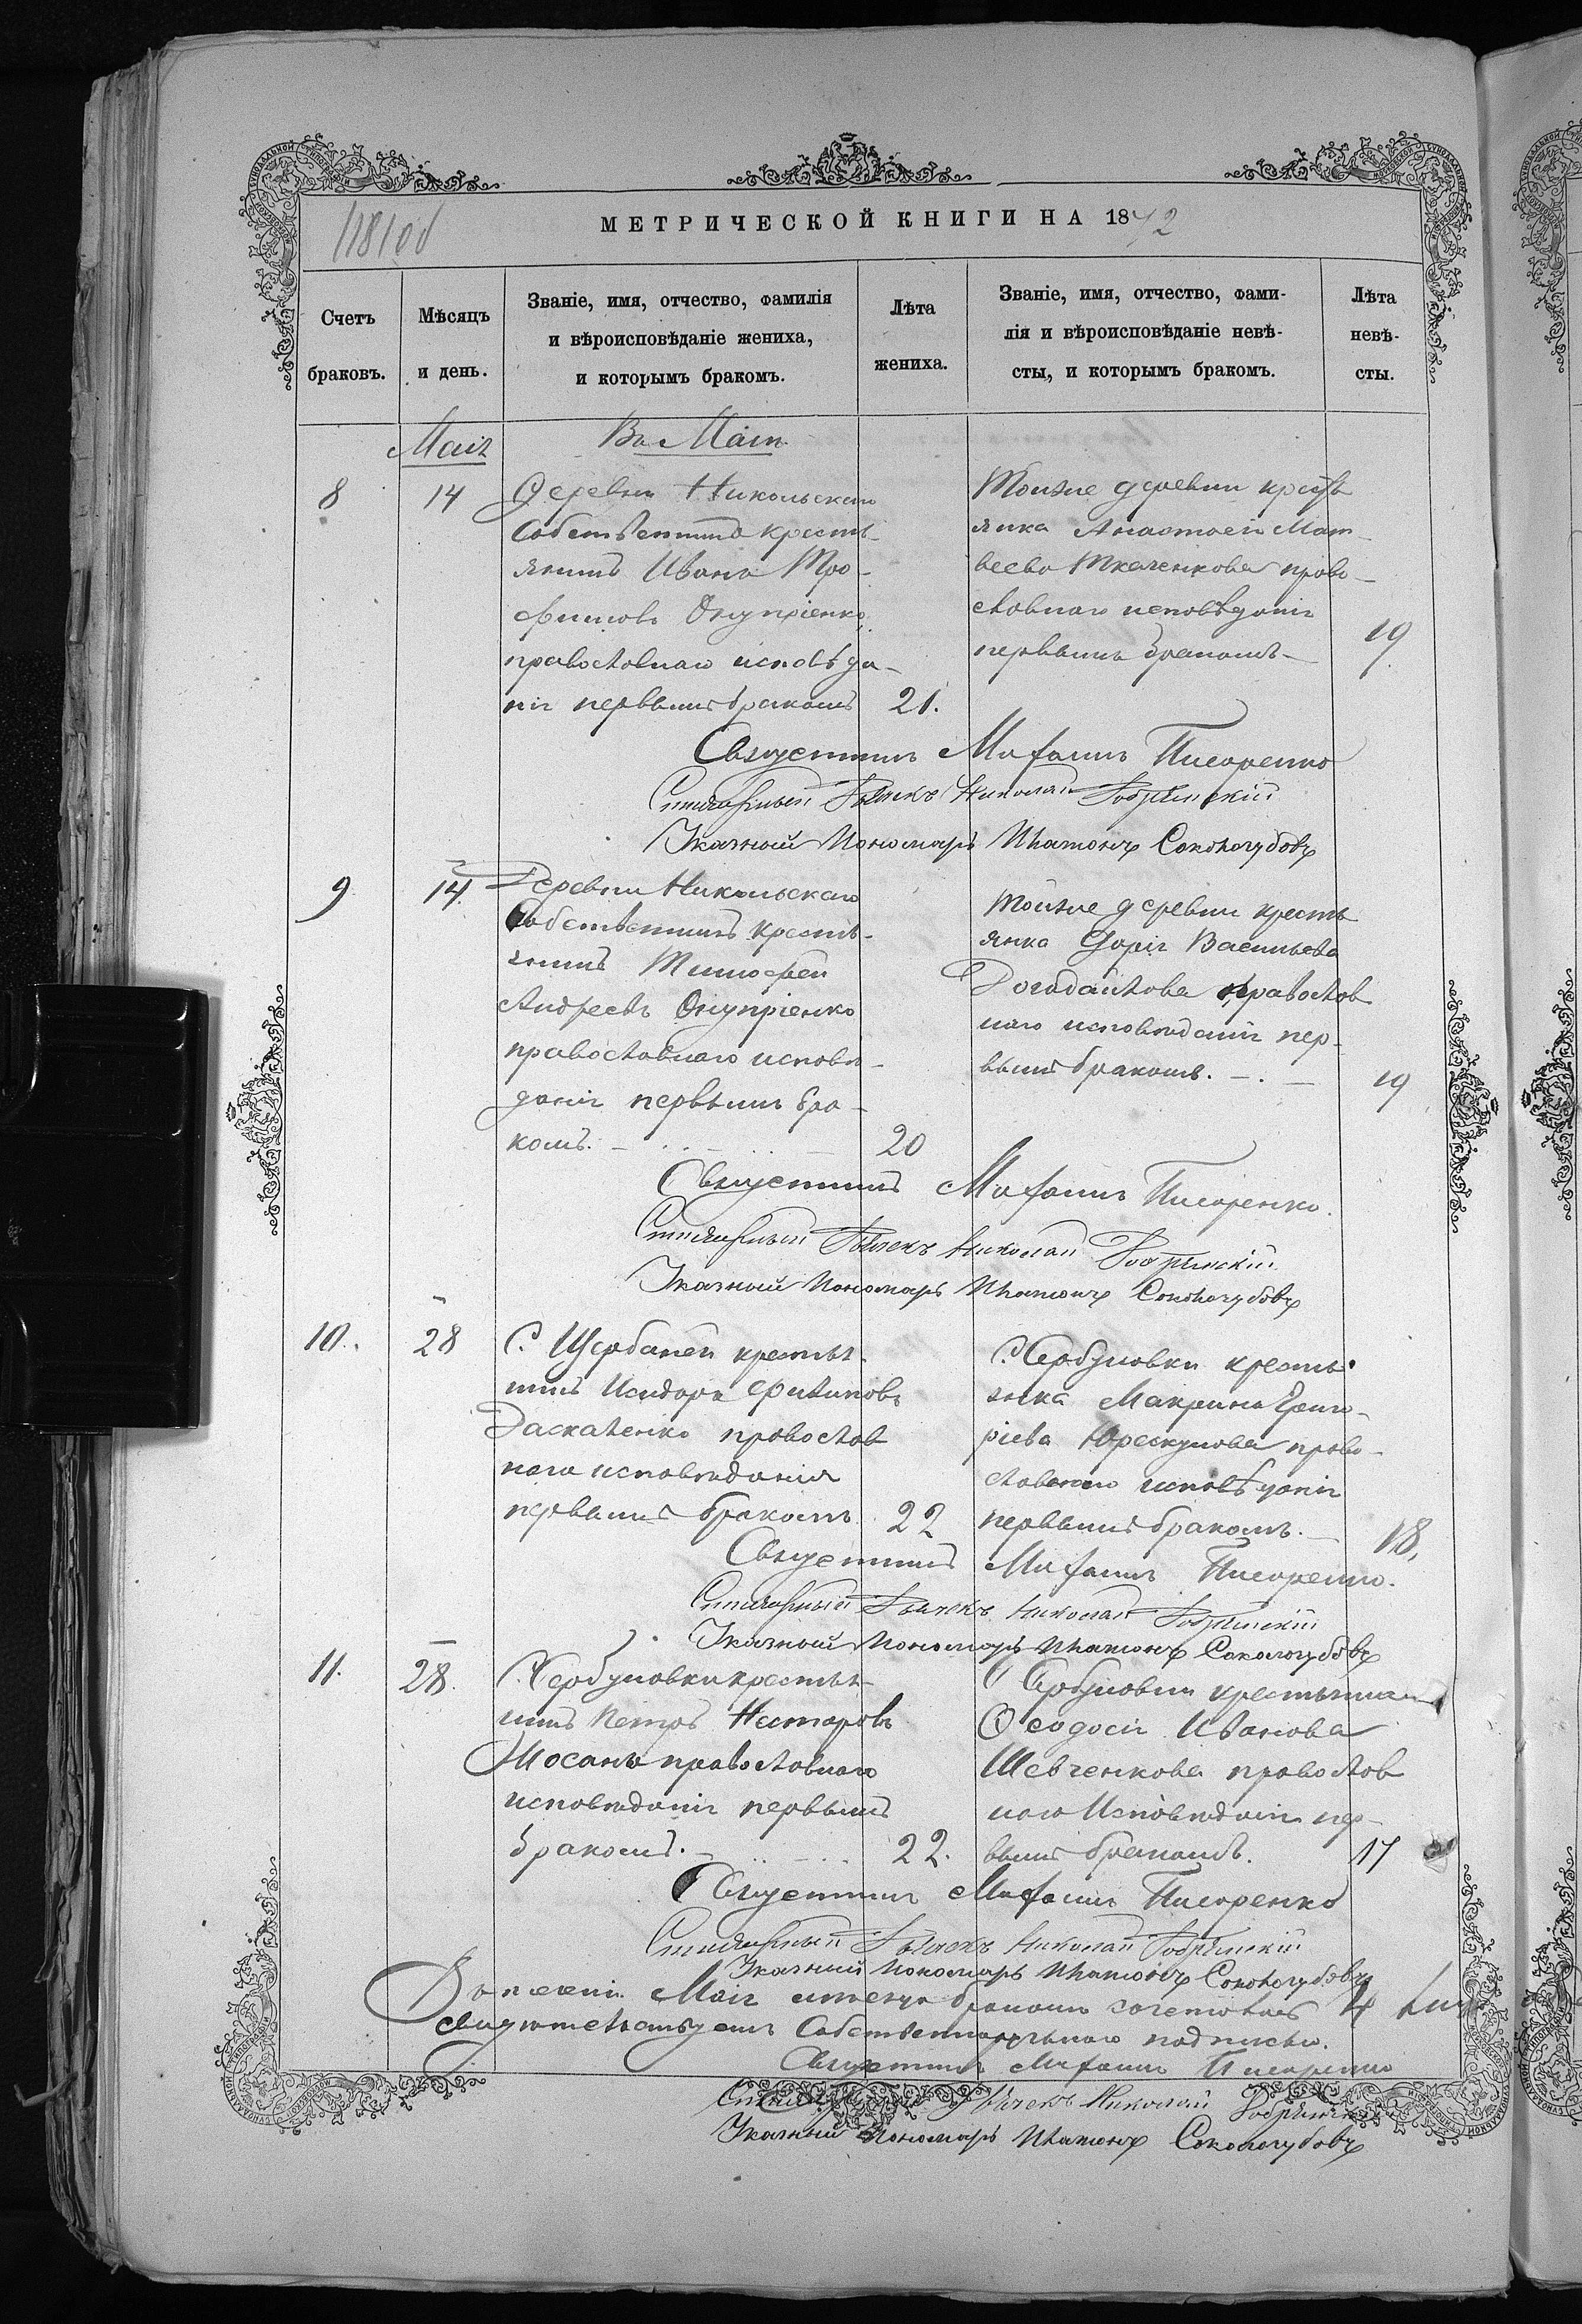 118 об
МЕТРИЧЕСКОЙ КНИГИ НА 1872
Счетъ браковъ.
Мѣсяцъ и день.
Званіе, имя, отчество, фамилія
и вѣроисповѣданіе жениха,
и которымъ бракомъ.
Лѣта жениха.
Званіе, имя, отчество, фами-
лія и вѣроисповѣданіе невѣ-
сты, и которымъ бракомъ.
Лѣта невѣ-
сты.
Маія
Въ Маіи
8
14
Деревни Никольскаго
Собственникъ кресть-
янинъ Иванъ Тро-
фимовъ Онупріенко,
православнаго исповѣда-
нія первымъ бракомъ
21.
Тойже деревни кресть
янка Анастасія Мат-
веева Ткаченкова право-
славнаго исповѣданія
первымъ бракомъ
19
Священникъ Мифаилъ Писаренко
Стихарный Дьячекъ Николай Добрянскій
Указный Пономарь Платонъ Сокологубовъ
9
14
Деревни Никольскаго
Собственникъ кресть-
янинъ Тимофей
Андреевъ Онупріенко
православнаго исповѣ-
данія первымъ бра-
комъ.
20
Тойже деревни кресть
янка Дарія Васильева
Догадайлова православ
наго исповѣданія пер-
вымъ бракомъ.
19
Священникъ Мифаилъ Писаренко.
Стихарный Дьячекъ Николай Добрянскій
Указный Пономарь Платонъ Сокологубовъ
10.
28
С. Щербаней крестья-
нинъ Исидоръ Филиповъ
Даскаленко православ
наго исповѣданія
первымъ бракомъ
22
С. Сербуловки кресть-
янка Макрина Григо-
ріева право-
славнаго исповѣданія
первымъ бракомъ.
18.
Священникъ Мифаилъ Писаренко.
Стихарный Дьячекъ Николай Добрянскій
Указный Пономарь Платонъ Сокологубовъ
11.
28.
С. Сербуловки крестья-
нинъ Петръ Несторовъ
православнаго
исповѣданія первымъ
бракомъ.
22.
С. Сербуловки крестьянка
Ѳеодосія Иванова
Шевченкова православ
наго Исповѣданія пер-
вымъ бракомъ.
17
Священникъ Мифаилъ Писаренко
Стихарный Дьячекъ Николай Добрянскій
Указный Пономарь Платонъ Сокологубовъ
Маія мѣсяца бракомъ сочетовалъ 4
свидѣтельствуемъ Собственноручною подписью.
Священникъ Мифаилъ Писаренко
Дьячекъ Николай Добрянскій
Указный Пономарь Платонъ Сокологубовъ